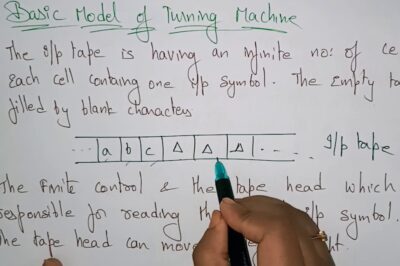 Basic Model of Turning Machine
The i/p tape is having an infinite no: of ce
Each cell containg one i/p symbol. The Empty ta
filled by blank characters
... a b c Δ Δ Δ - - - . I/p tape
The Finite control & the tape head which
responsible for reading the i/p symbol.
The tape head can move